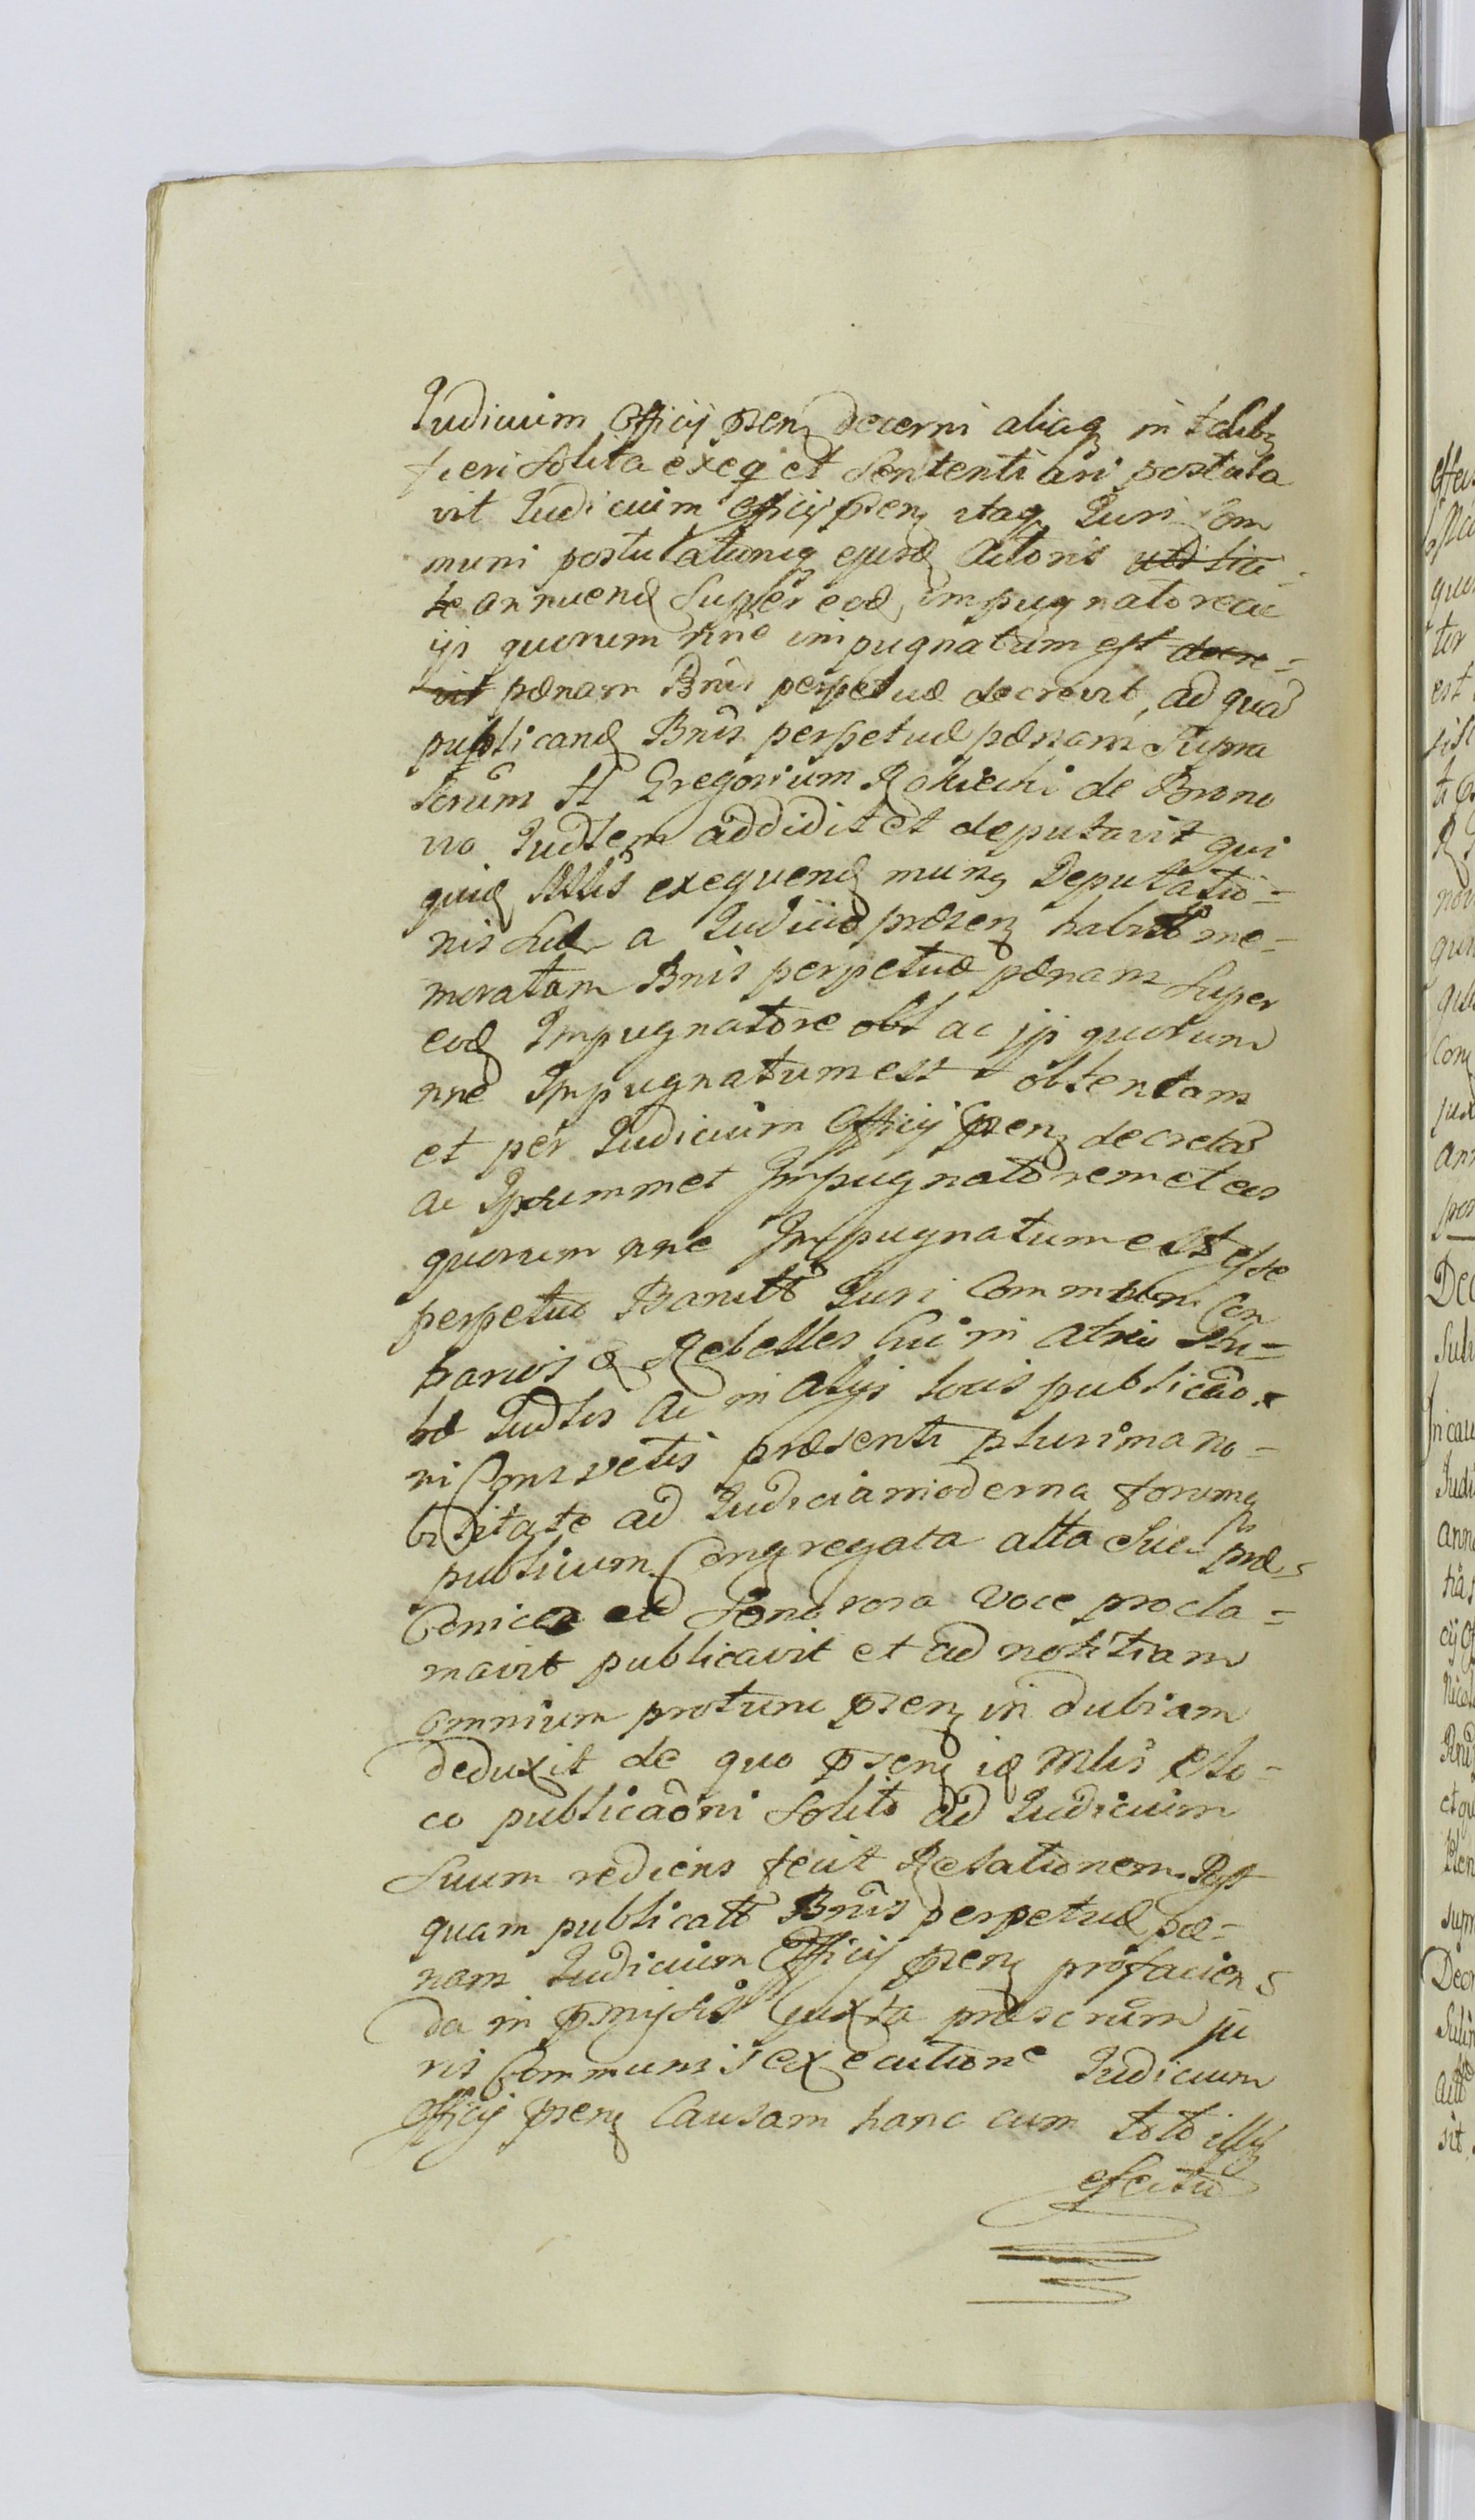 Judicium Officij psenz decerni aliaq in talibz
fieri solita exeq et sententiari postula
vit Judicium Officij psenz itaq Juri Com
muni postulationiq ejusd Actoris
te annuend super eod impugnatore ac
ijs quorum nne impugnatum est decre=
vit pænam Bnis perpetuæ decrevit, ad quā
publicand Bnis perpetuæ pænam supra
scrūm H Gregorium Rokicki de Brono
wo Judlem addidit et deputavit qui
quid Mlis exequend munz Deputatio=
nis suæ a Judicio præsenz habito me=
moratam Bnis perpetuæ pænam super
eod Impugnatore obt ac ijs quorum
nne Impugnatum est obtentam
et per Judicium Officij psenz decretā
ac Ipsummet Impugnatorem et eos
quorum nne Impugnatum est esse
perpetuo Banitt Juri Communi Con
trarios & Rebelles hic in atrio Stu=
bæ Judlis ac in alijs locis publicāo
ni Consvetis præsenti plurima no=
bilitate ad Judicia moderna forumq
publicum Congregata alta sui præ=
Conica et Sonorosa voce procla=
mavit publicavit et ad notitiam
omnium protunc psenz in dubiam
deduxit de quo psenz id Mlis e lo=
co publicāoni solito ad Judicium
suum rediens fecit Relationem Post
quam publicatt Bnis perpetuæ pæ=
nam Judicium Officij psenz pro facien
da in pmissis juxta præscrūm ju
ris Communis executione Judicium
Officij psenz Causam hanc cum toto illz
effectu